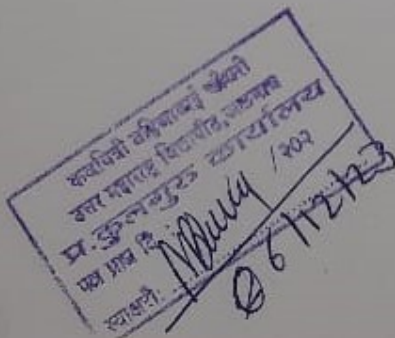 कवयित्री बहिणाबाई चौधरी
उत्तर महाराष्ट्र विद्यापीठ, जळगाव
प्र. कुलगुरू कार्यालय
पत्र प्राप्त दि. /२०२
स्वाक्षरी:
06/12/23